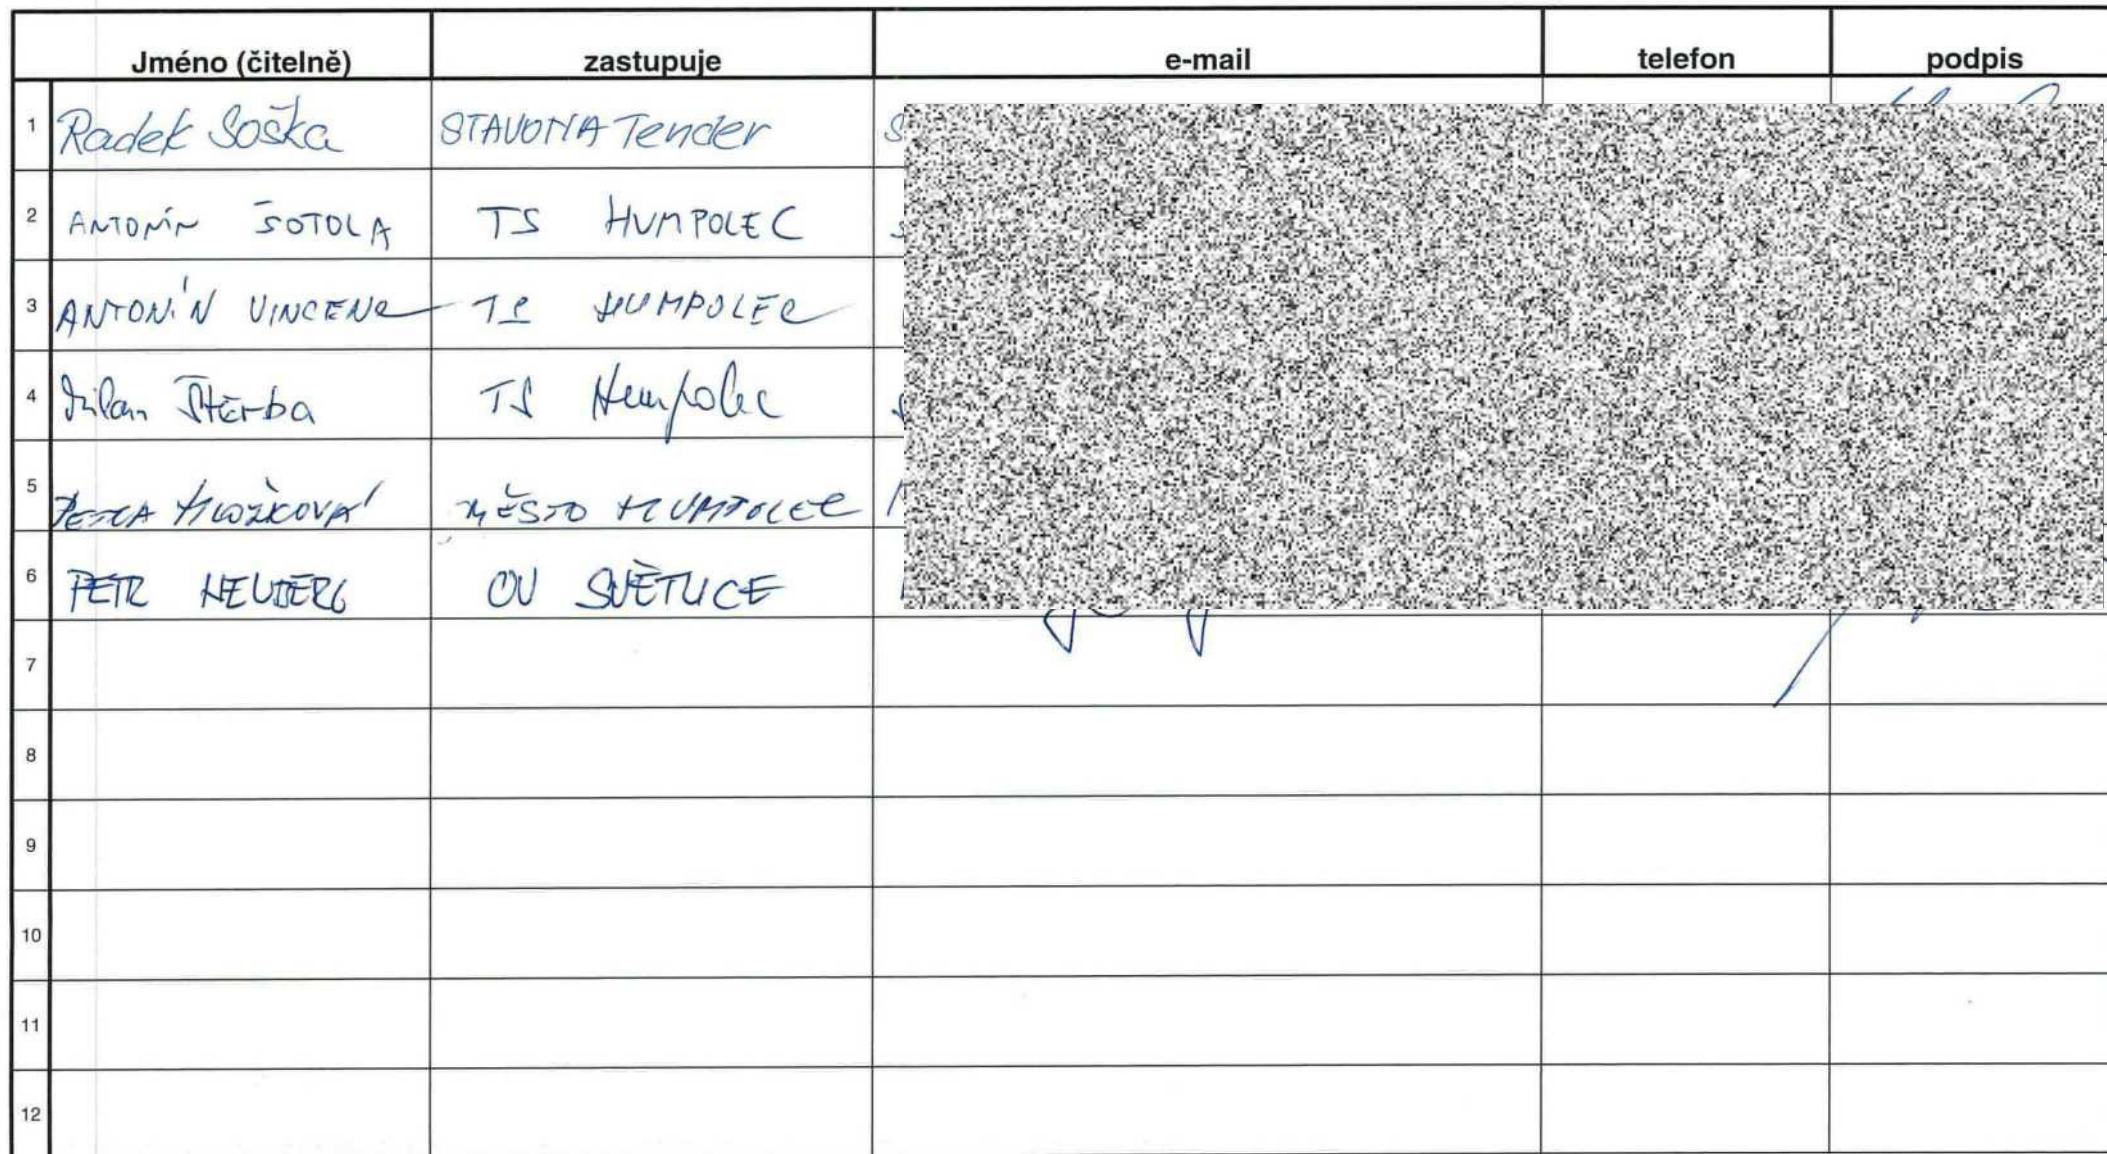 Jméno (čitelně) zastupuje e-mail telefon podpis
1 Radek Soška STAVONA Tender
2 ANTONÍN ŠOTOLA TS HUMPOLEC
3 ANTONÍN VINCENC TS HUMPOLEC
4 Milan Štěrba TS Humpolec
5 MĚSTO HUMPOLEC
6 PETR OV SVĚTLICE
7
8
9
10
11
12